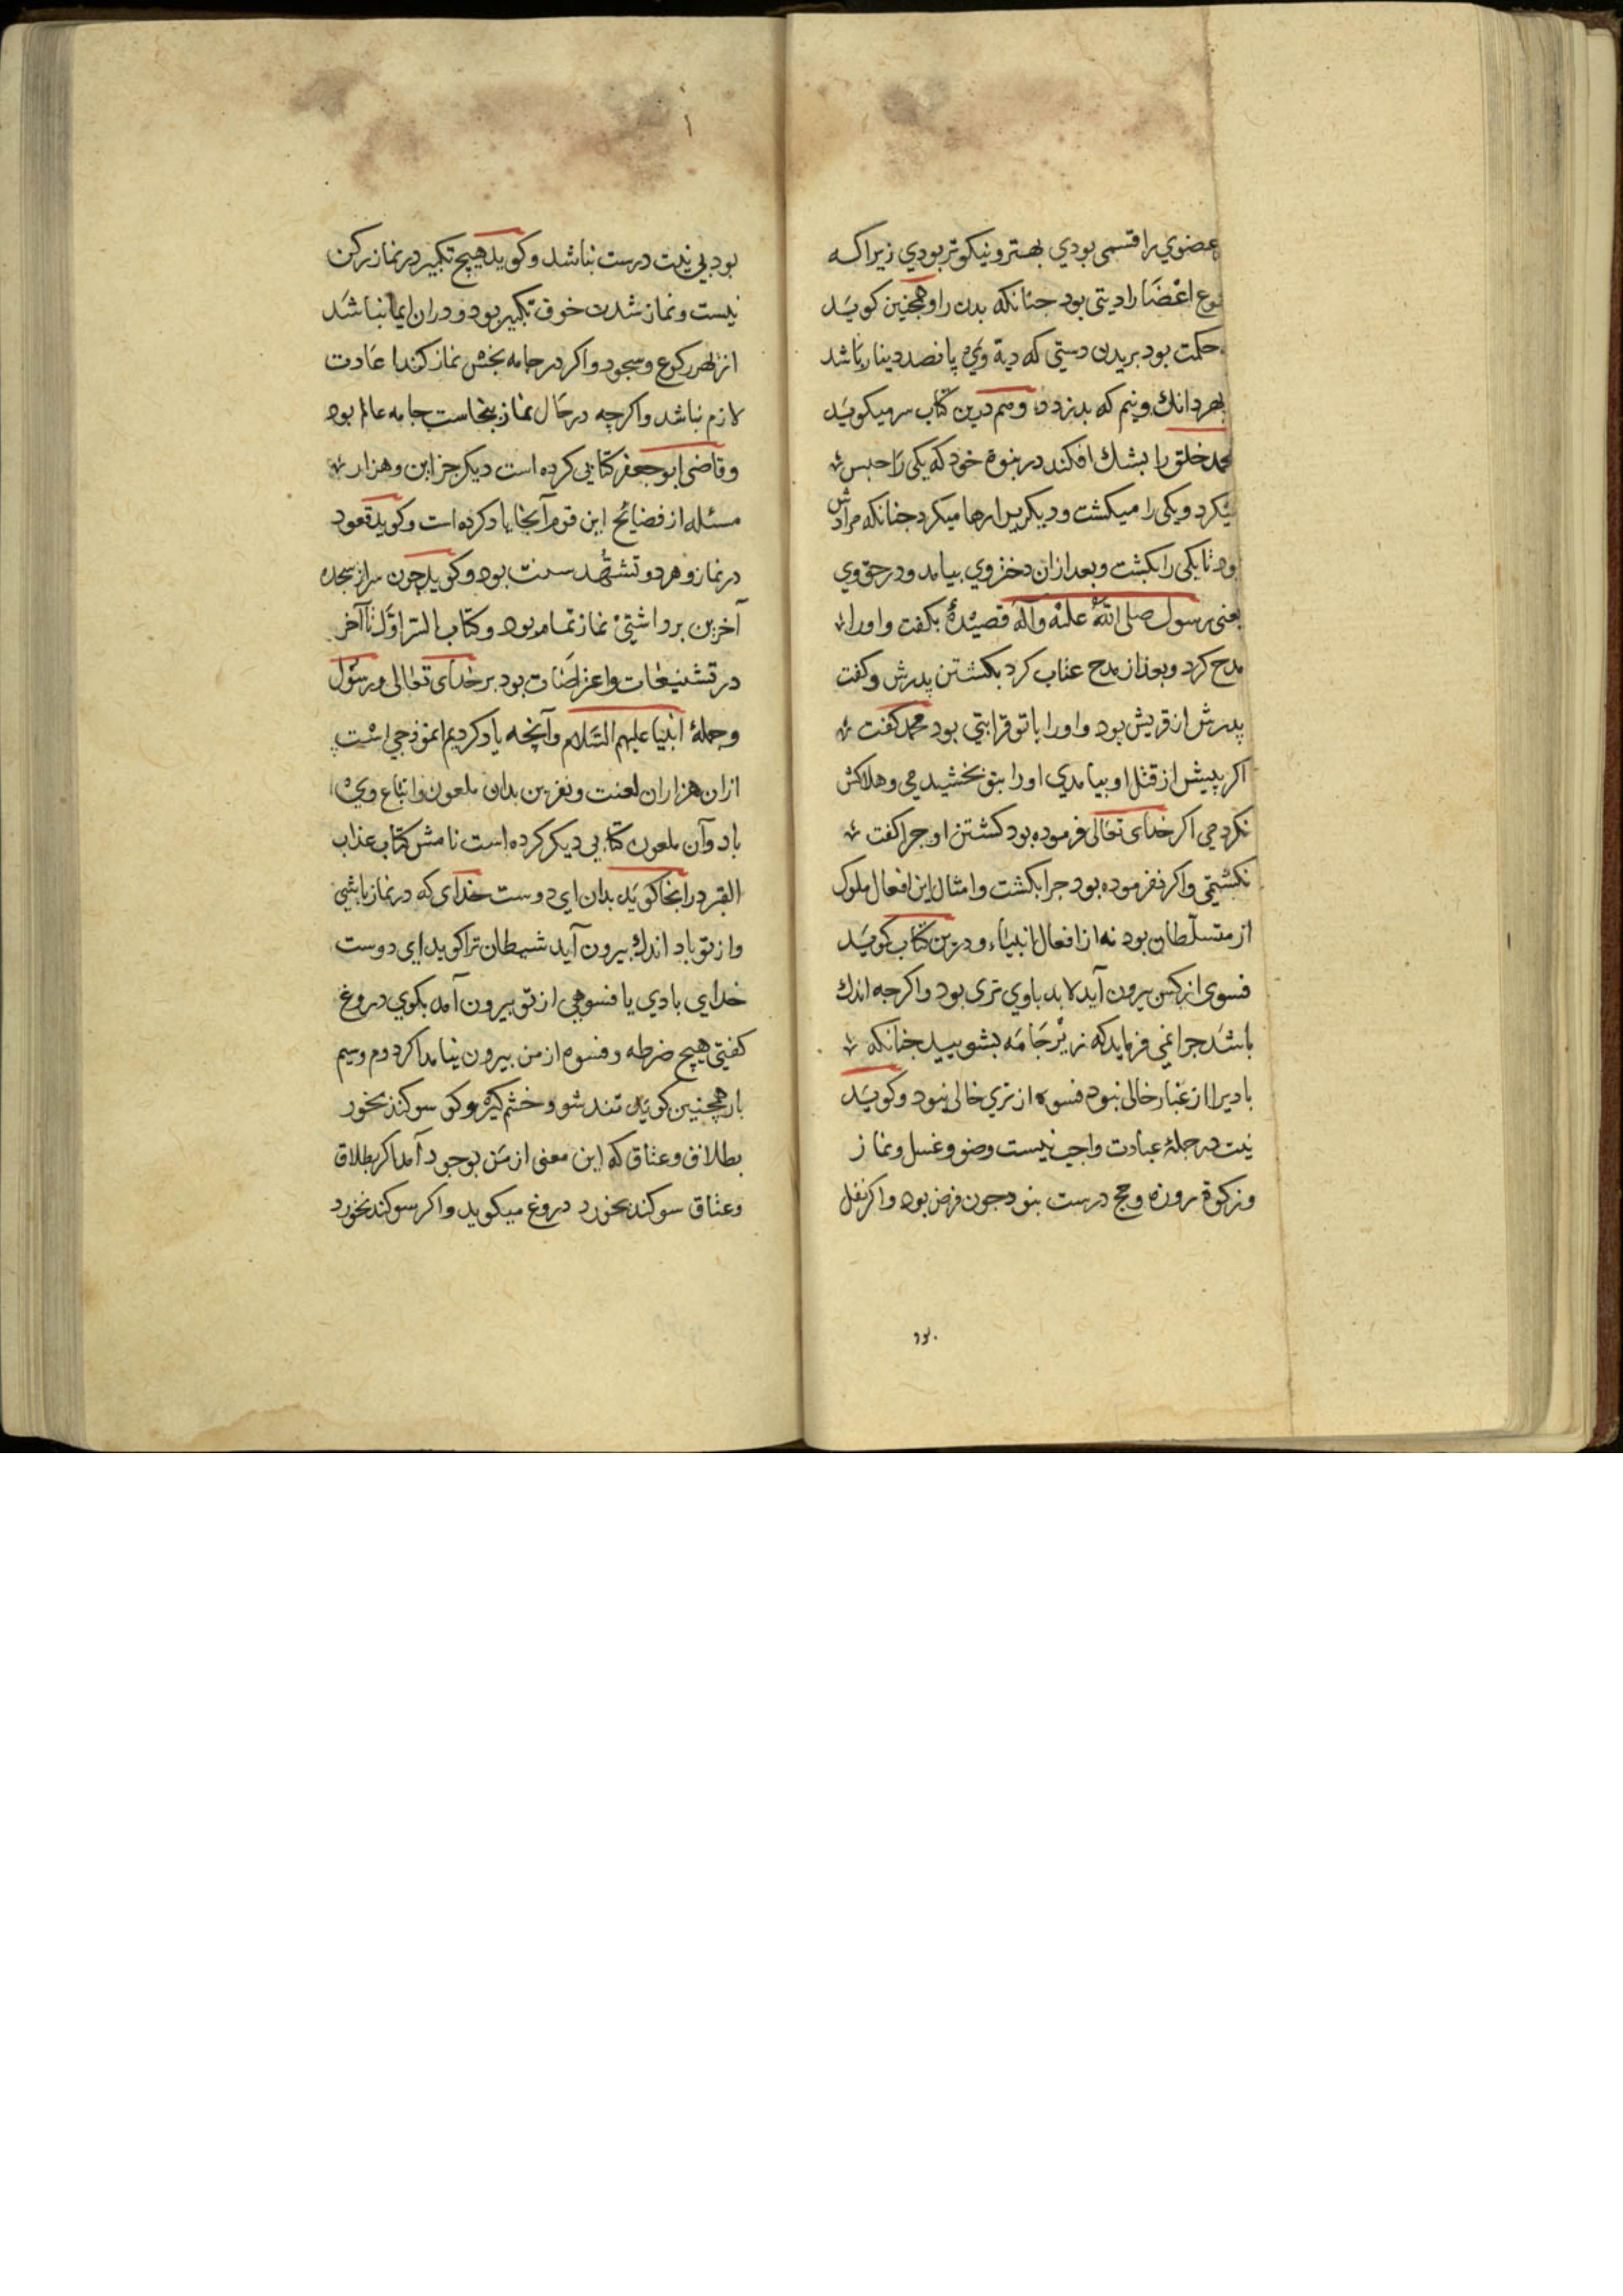 عضوي را قسمی بودي بهتر و نیکوتر بودي زیرا که
نوع اعضا را دیتی بود جنانکه بدن را و همجنین کوید
حکمت بود بریدن دستی که دیة وی پانصد دینار باشد
بهر دانك و نیم که بدزدد و هم درین کتاب سر میکوید
محمد خلق را بشك افکند در نبوة خود که یکی را حبس
میکرد و یکی را میکشت و دیکریرا رها میکرد جنانکه مرادش
بود تا یکی را بکشت و بعد از ان دختر وي بیامد و در حق وي
یعنی رسول صلی الله علیه وآله قصیدۀ بکفت و اورا
مدح کرد و بعد از مدح عتاب کرد بکشتن پدرش و کفت
پدرش از قریش بود و اورا با تو قرابتی بود محمد کفت
اکر پیش از قتل او بیامدي اورا بتو بخشیدمی و هلاکش
نکردمی اکر خدای تعالی فرموده بود کشتن او جرا کفت
نکشتمی و اکر نفرموده بود جرا بکشت و امثال این افعال ملوك
از متسلّطان بود نه از افعال انبیاء و درین کتاب کوید
فسوی از کس بیرون آید لابد باوي تری بود و اکرجه اندك
باشد جرا نمی فرماید که زیر جامه بشویید جنانکه
بادیرا از غبار خالی نبود فسوه از تري خالی نبود و کوید
نیت در جملۀ عبادت واجب نیست وضو و غسل و نماز
و زکوة و روزه و حج درست بنود جون فرض بود و اکر نفل
بود بي نیت درست نباشد و کوید هیچ تکبیر در نماز رکن
نیست و نماز شدت خوف تکبیر بود و دران ایما نباشد
از بهر رکوع و سجود و اکر در جامه نجش نماز کند اعادت
لازم نباشد و اکرچه در حال نماز بنجاست جامه عالم بود
و قاضی ابو جعفر کتابی کرده است دیکر جز این و هزار
مسئله از فضایح این قوم آنجا یاد کرده است و کوید قعود
در نماز و هر دو تشهّد سنت بود و کوید چون سر از سجده
آخرین برداشتی نماز تمام بود و کتاب السر اوّل تا آخر
در تشنیعات و اعتراضات بود بر خدای تعالی و رسول
و جملۀ انبیا علیهم السّلام وآنچه یاد کردیم انموذجی است
از ان هزاران لعنت و نفرین بدان ملعون و اتباع وي
باد وآن ملعون کتابی دیکر کرده است نامش کتاب عذاب
القبر در انجا کوید بدان اي دوست خدای که در نماز باشی
و از تو باد اندك بیرون آید شیطان ترا کوید اي دوست
خدای بادي یا فسوهی از تو بیرون آمد بکوي دروغ
کفتی هیچ ضرطه و فسوه از من بیرون نیامد اکر دوم و سیم
بار همچنین کوید تند شو و خشم کیر و کو سوکند بخور
بطلاق و عتاق که این معنی از من بوجود آمد اکر بطلاق
و عتاق سوکند بخورد دروغ میکوید و اکر سوکند نخورد